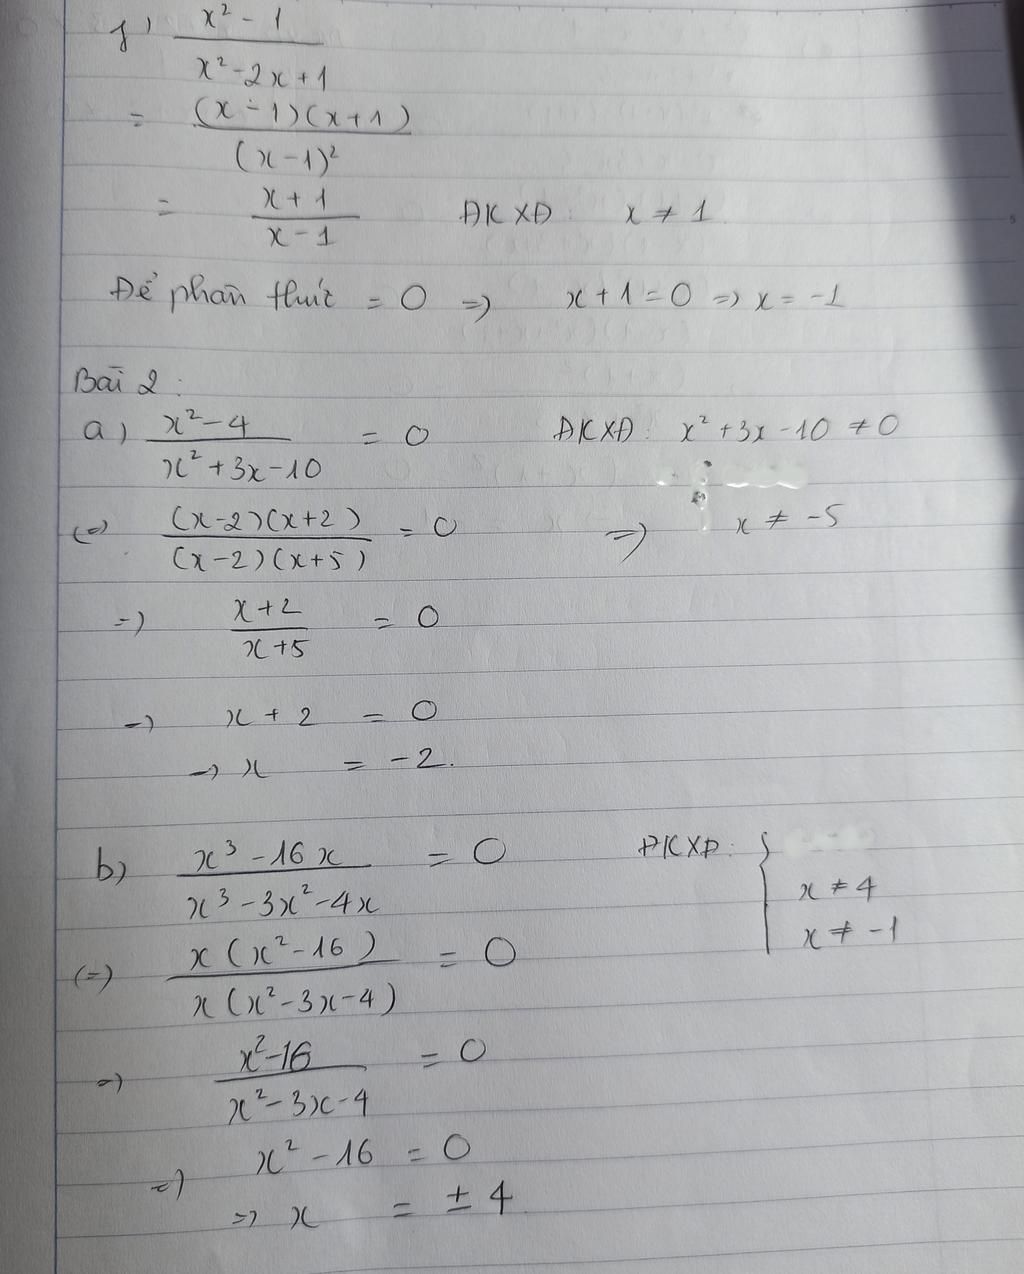 f) x² - 1
x² - 2x + 1
= (x - 1)(x + 1)
(x - 1)²
= x + 1
x - 1
ĐKXĐ: x ≠ 1
Để phân thức = 0 => x + 1 = 0 => x = -1
Bài 2:
a) x² - 4 = 0
x² + 3x - 10
ĐKXĐ: x² + 3x - 10 ≠ 0
(=) (x - 2)(x + 2) = 0
(x - 2)(x + 5)
=> x ≠ -5
=) x + 2 = 0
x + 5
=) x + 2 = 0
=> x = -2.
b) x³ - 16x = 0
x³ - 3x² - 4x
ĐKXĐ: {
x ≠ 4
x ≠ -1
(=) x(x² - 16) = 0
x(x² - 3x - 4)
=) x² - 16 = 0
x² - 3x - 4
=) x² - 16 = 0
=> x = ± 4